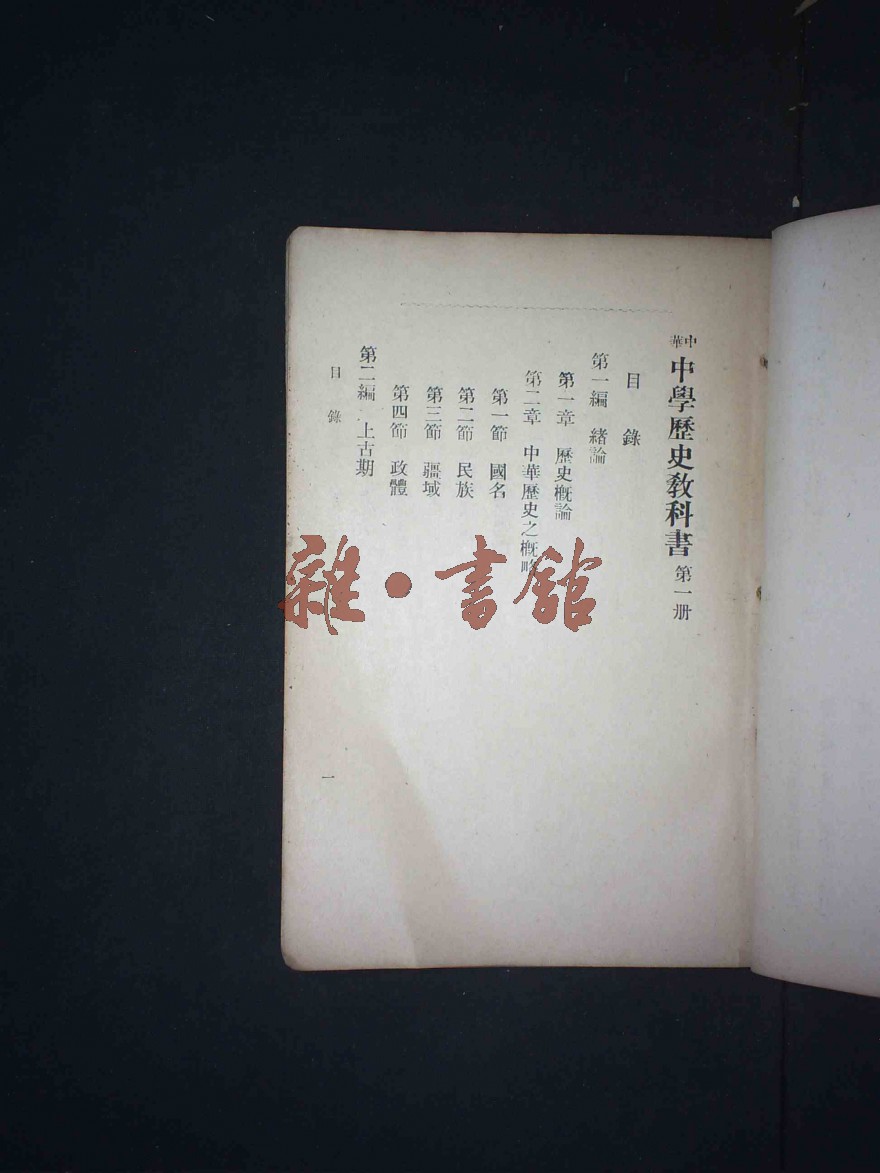 中華 中學歷史教科書 第一册
目錄
第一編 緒論
第一章 歷史概論
第二章 中華歷史之概略
第一節 國名
第二節 民族
第三節 疆域
第四節 政體
第二編 上古期
目錄
一
雜·書館